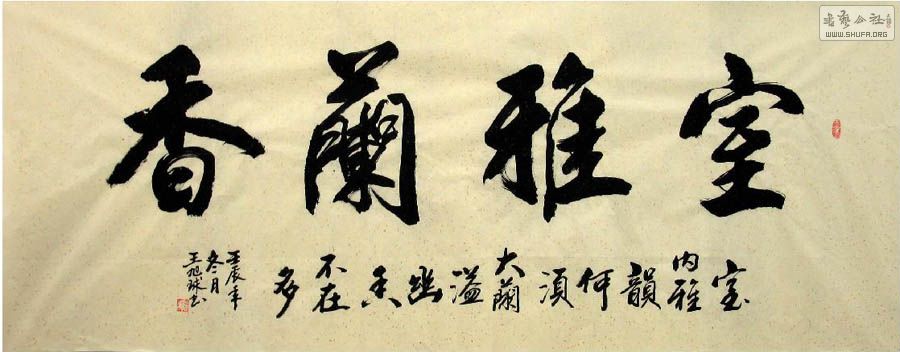 室雅蘭香
室
内雅
韻
何
須
大蘭
溢
幽
香
不在
多
壬辰年
冬月
王旭球书
书艺公社
WWW.SHUFA.ORG